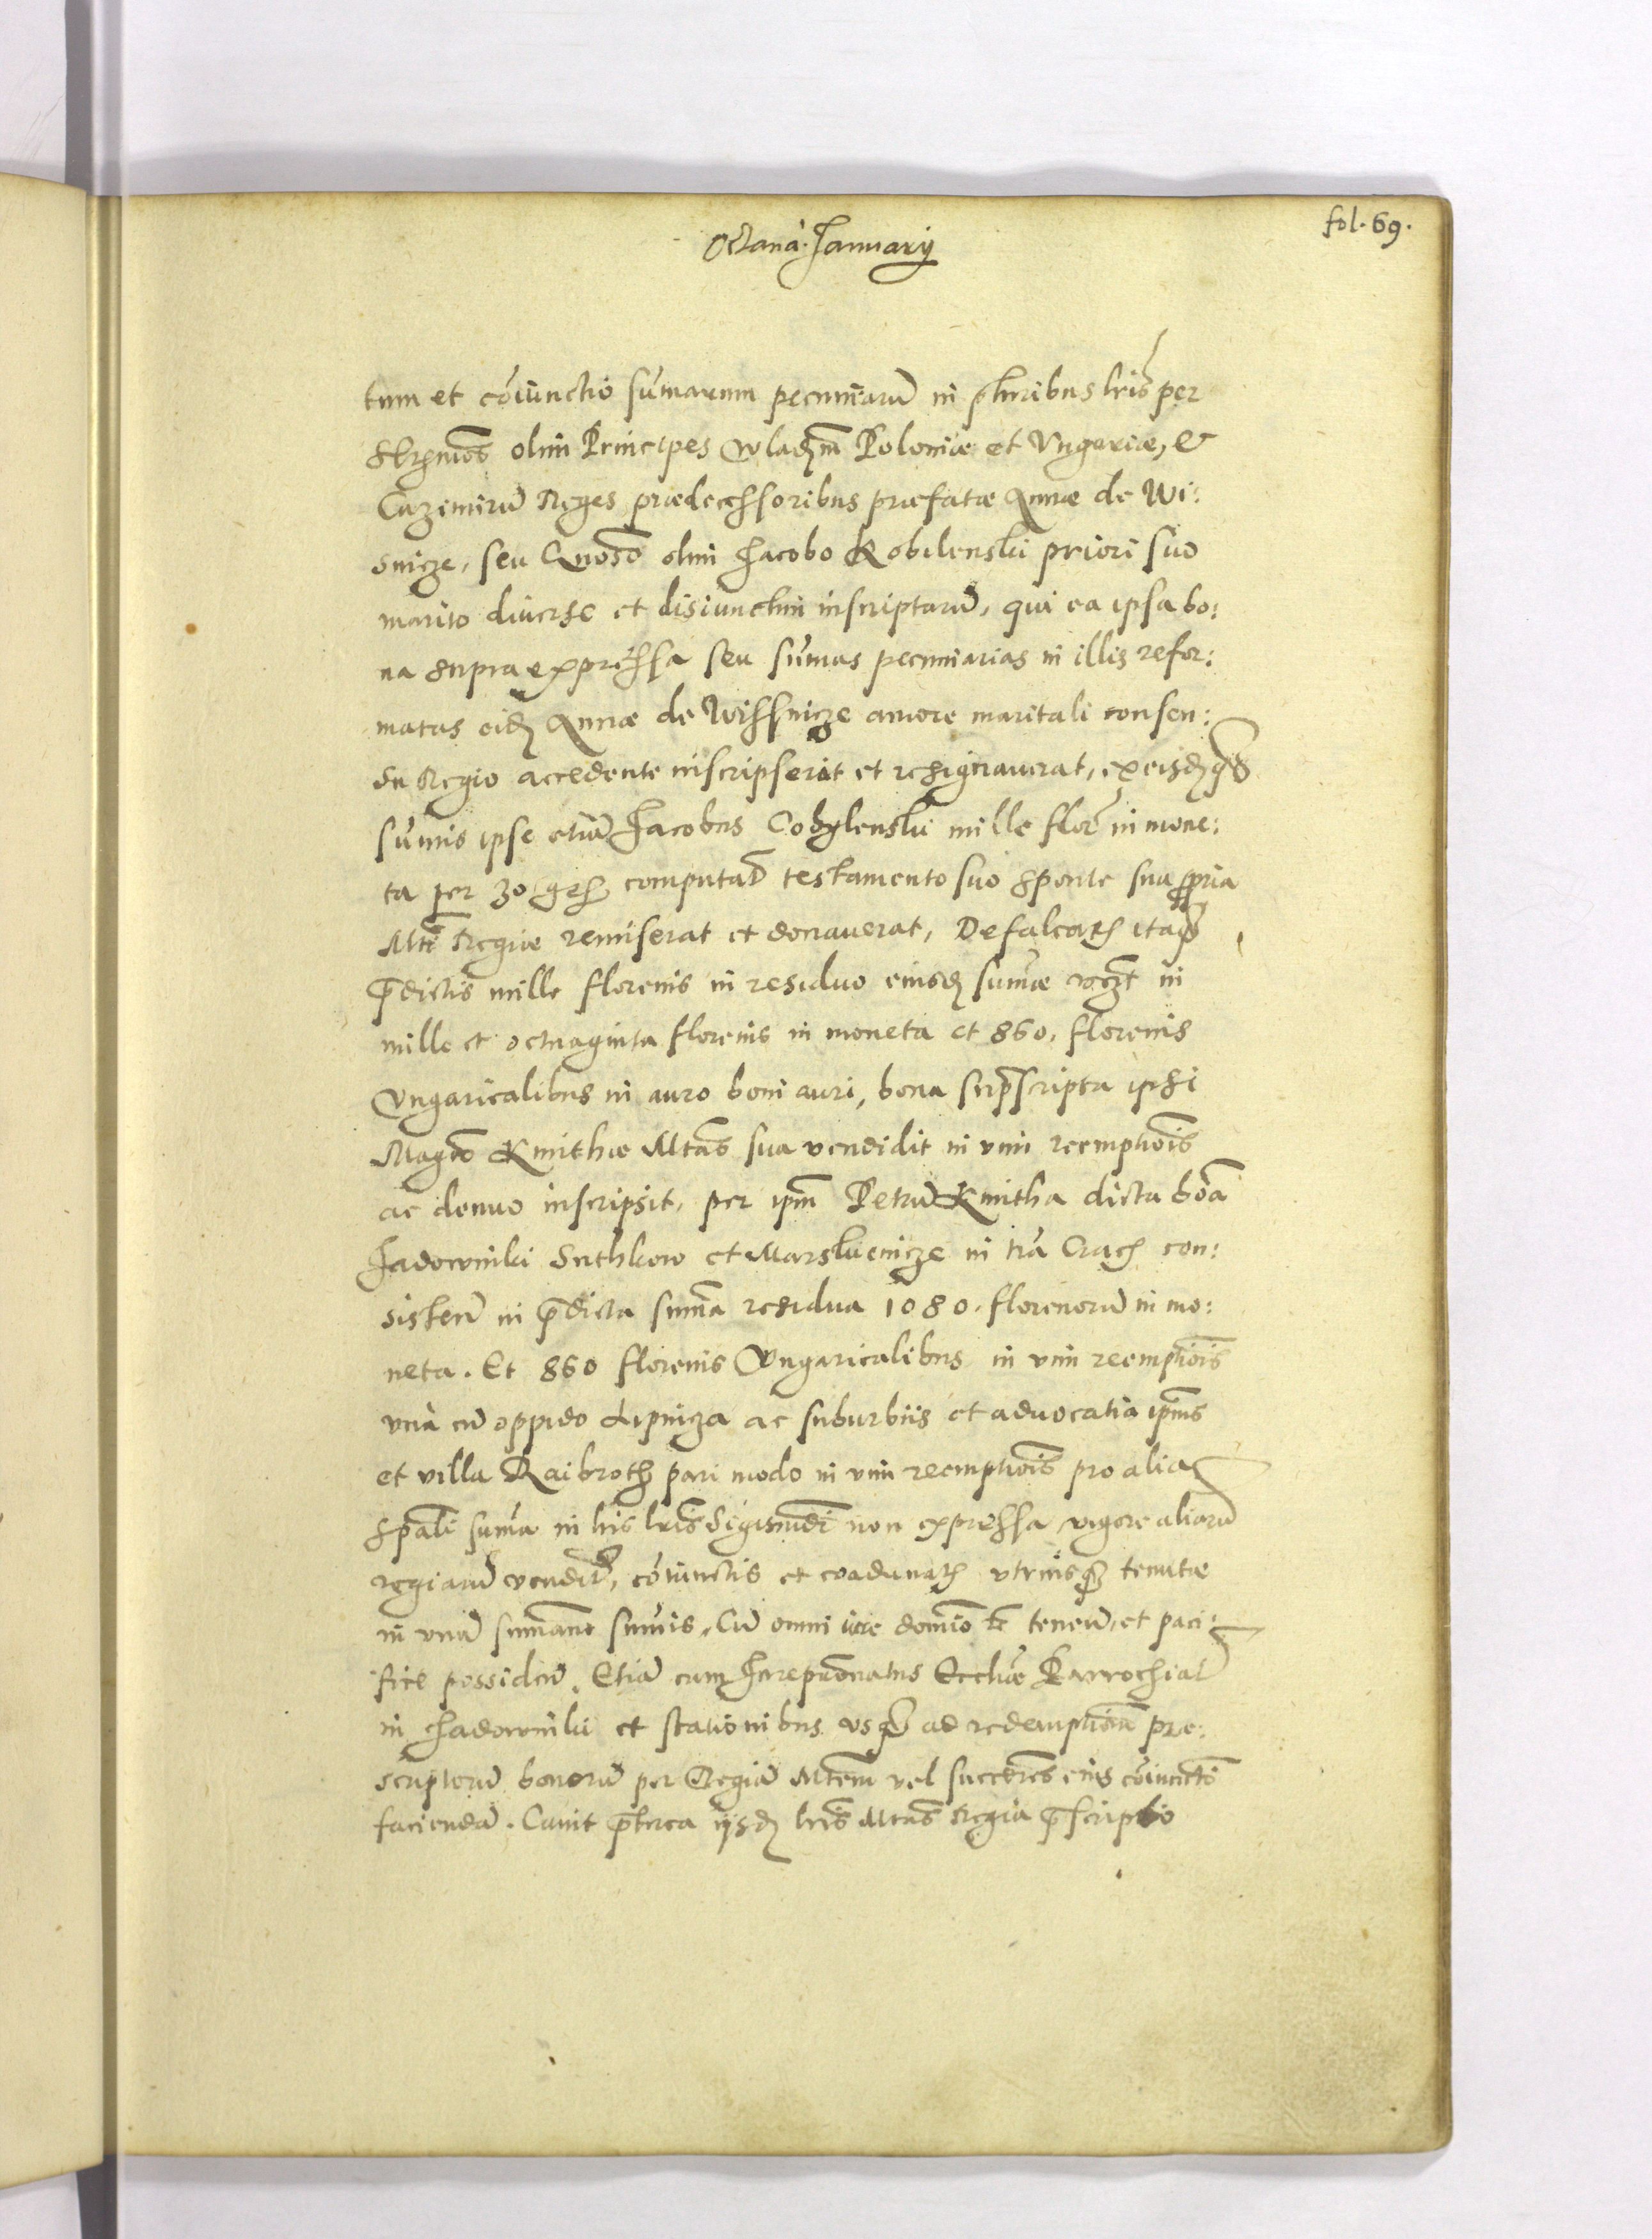 fol. 69.
Octaua Januarij
tum et cōiunctio sum̄arum pecuniarū in pluribus lris per
olim Principes Wladm̄ Poloniæ et Vngariæ, &
Cazimirū Reges prædecessoribus præfatæ Annæ de Wi:
snicze, seu Gnōso olim Jacobo Kobilenski priori suo
marito diuerse et disiunctim inscriptarū, qui ea ipsa bo:
na supra expressa seu sum̄as pecuniarias in illis refor:
matas eidȝ Annæ de Wissnicze amore maritali consen:
su Regio accedente inscripserat et resignauerat, ex eisdȝ qȝ
sum̄is ipse etiā Jacobus Cobylenski mille flor̄ in mone:
ta per 30 computād testamento suo sponte sua ꝓpria
Mti Regiæ remiserat et donauerat, Defalcatȝ itaqȝ
p̄dictis mille florenis in residuo eiusdȝ sum̄æ vczt in
mille et octuaginta florenis in moneta et 860. florenis
Vngaricalibus in auro boni auri, bona suprascripta ipsi
Magco Kmithæ Mtas sua vendidit in vim reemptiōis
ac denuo inscripsit, per ipm̄ Petrū Kmitha dicta bōa
Jadowniki Suthkow et Marskuenicze in tra Cracȝ con:
sisten̄ in p̄dicta summa residua 1080. florenorū in mo:
neta. Et 860 florenis Vngaricalibus in vim reemptiōis
vnà cū oppido Lipnicza ac suburbiis et aduocatia ipīus
et villa Raibroth pari modo in vim reemptiōis pro alia
spāli sum̄a in his lris Sigismūdi non expressa vigore aliarū
regiarū vendit̄, cōiunctis et coadunatȝ vtriusqȝ tenutæ
in vnā summam sum̄is, Cū omni iure domīo &c tenen̄. et paci:
fice possiden̄. Etiā cum Jurepatronatus Ecclīæ Parrochiał
in Jadowniki et stationibus vsqȝ ad redemptionem præ:
scriptorū bonorū per Regiā Mtem̄ vel succēres eius cōiunctī
faciendā. Cauit p̄terea ijsdȝ lris Mtas Regia p̄scripto